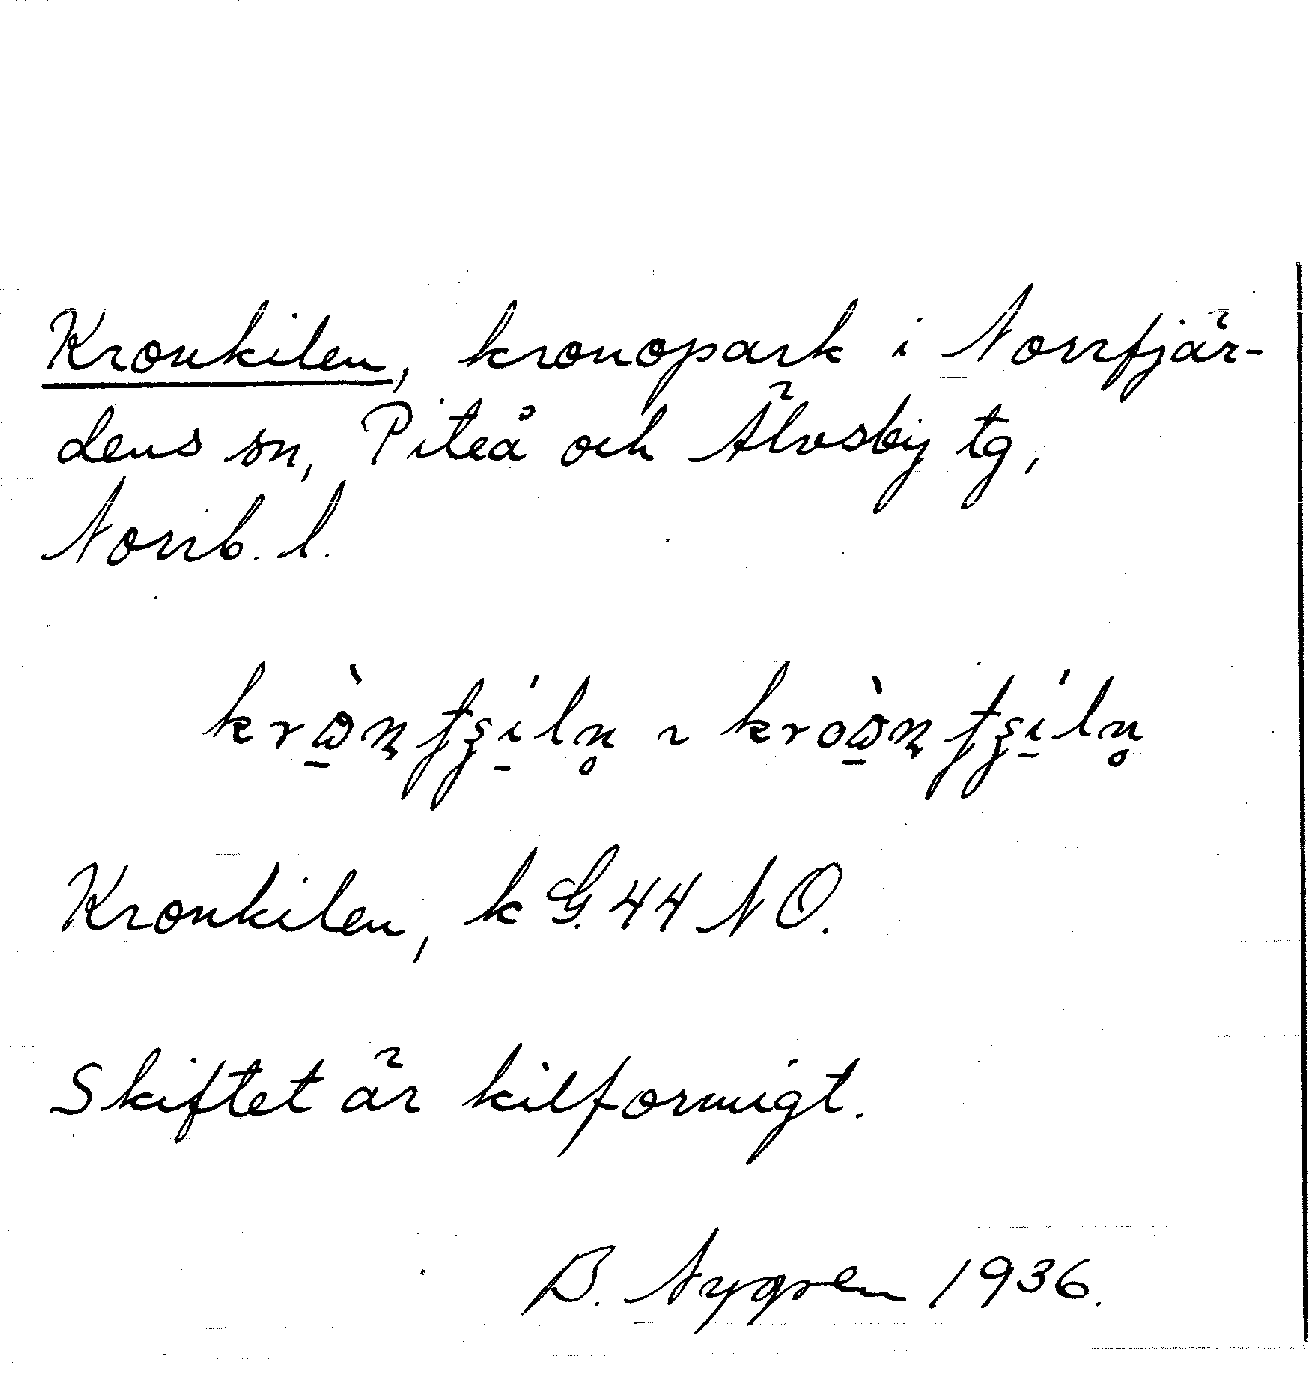 Kronkilen, kronopark i Norrfjär-
dens sn, Piteå och Älvsby tg,
Norrb. l.
Kronkilen, k G. 44 NO.
Skiftet är kilformigt.
B. Nygren 1936.